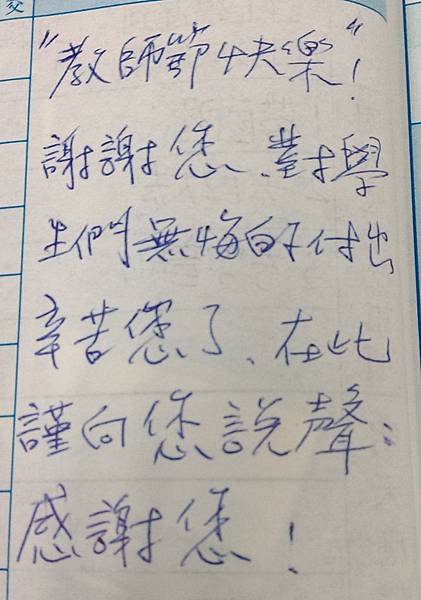 "教師節快樂"!
謝謝您、對學
生們無悔的付出
辛苦您了、在此
謹向您說聲:
感謝您!